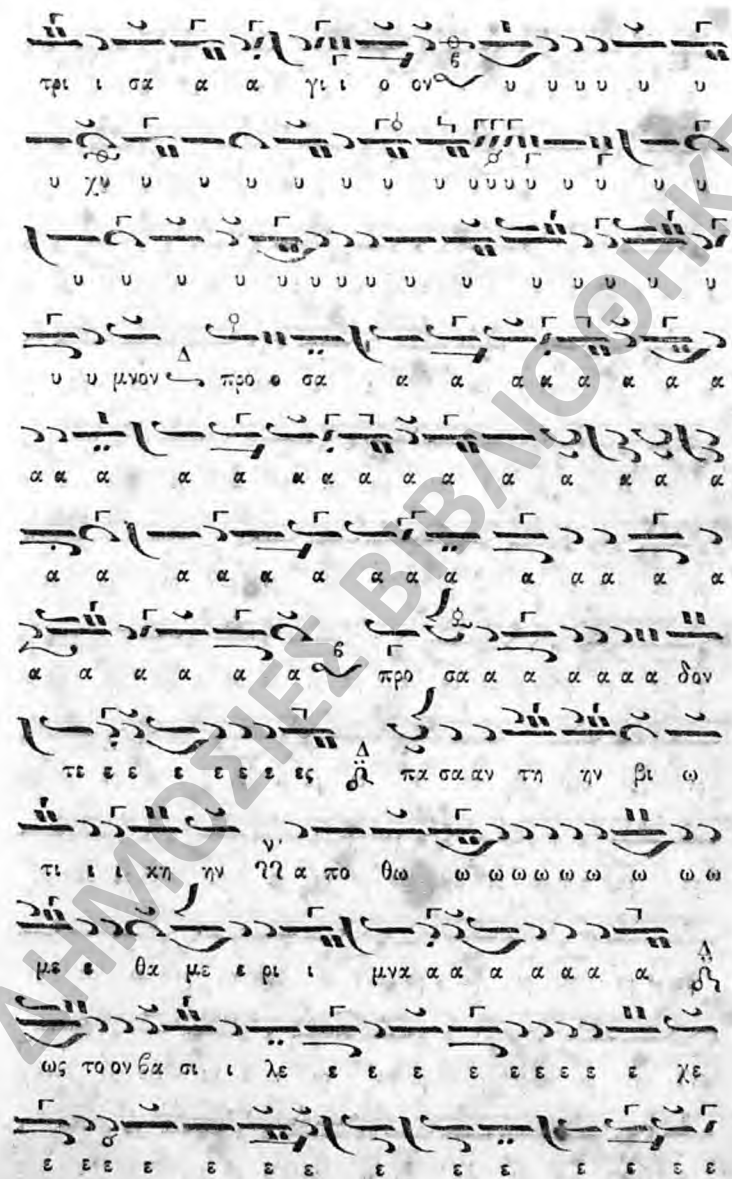 τρι ι σα α α γι ι ο ον β υ υ υ υ υ υ
υ χυ υ υ υ υ υ υ υ υ υ υ υ υ υ υ υ
υ υ υ υ υ υ υ υ υ υ υ υ υ υ υ
υ υ μνον Δ προ ο σα α α α α α α α α
α α α α α α α α α α α α α α
α α α α α α α α α α α α α α
α α α α α α α β προ σα α α α α α α δον
τε ε ε ε ε ε ε ες Δ πα σα αν τη ην βι ω
τι ι ι κη ην ν' α πο θω ω ω ω ω ω ω ω ω ω
με ε θα με ε ρι ι μνα α α α α α α α Δ
ως το ον βα σι ι λε ε ε ε ε ε ε ε ε ε χε
ε ε ε ε ε ε ε ε ε ε ε ε ε ε
ΔΗΜΟΣΙΕΣ ΒΙΒΛΙΟΘΗΚΕΣ